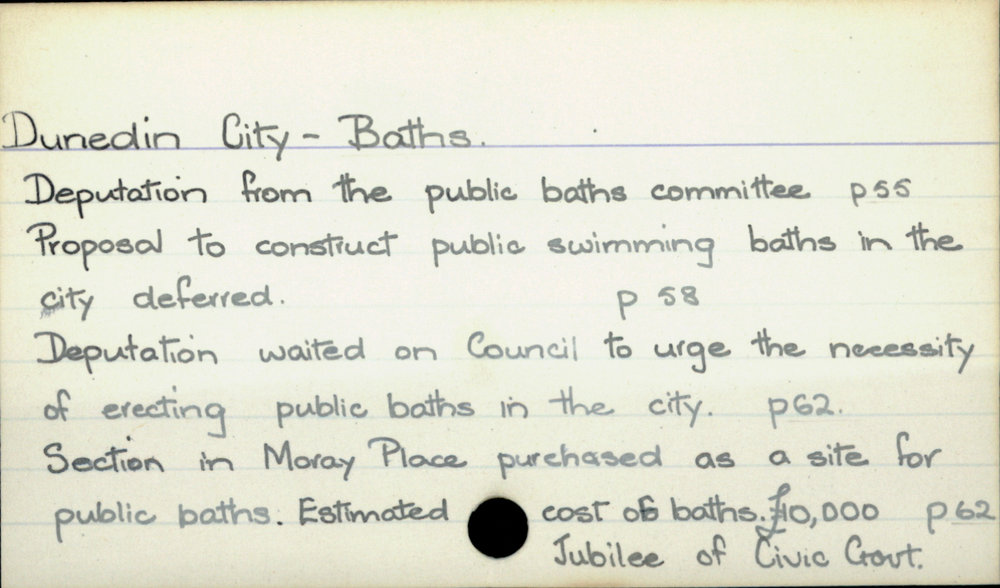 Dunedin City - Baths.
Deputation from the public baths committee p55
Proposal to construct public swimming baths in the
city deferred. p 58
Deputation waited on Council to urge the necessity
of erecting public baths in the city. p62.
Section in Moray Place purchased as a site for
public baths. Estimated cost of baths. £10,000 p62
Jubilee of Civic Govt.